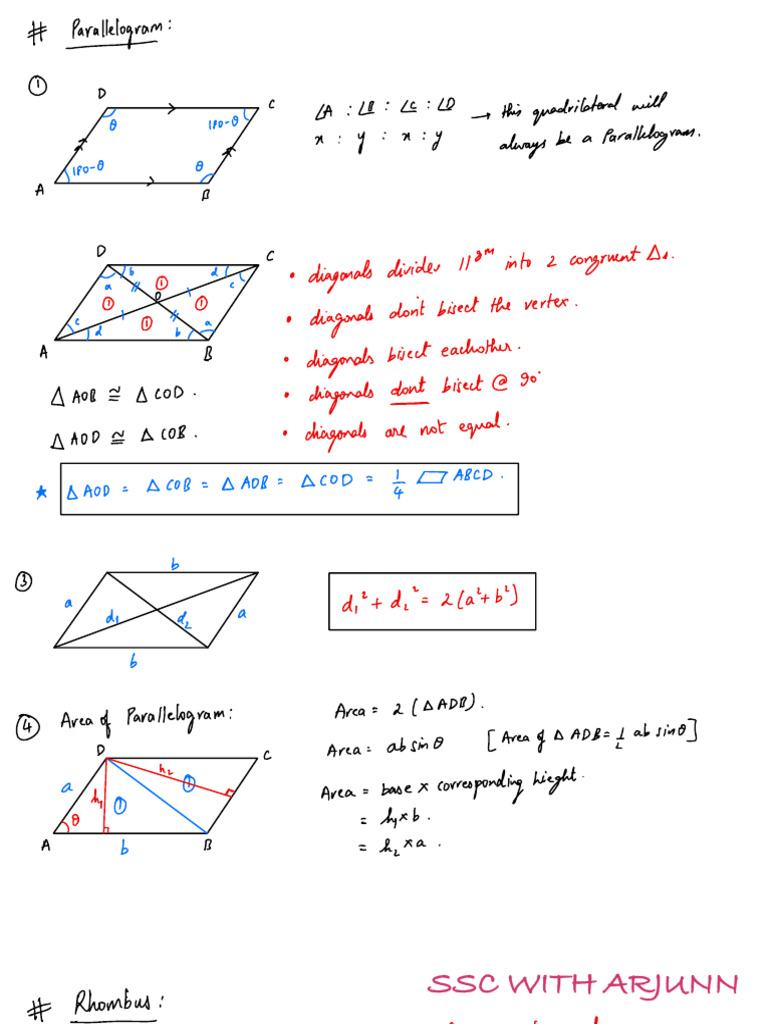 # Parallelogram:
①
D C
θ 180-θ
180-θ θ
A B
∠A : ∠B : ∠C : ∠D → this quadrilateral will
x : y : x : y always be a Parallelogram.
D C
b d
a ① c
① O ①
c ① a
d b
A B
• diagonals divides ||gm into 2 congruent Δs.
• diagonals don't bisect the vertex.
• diagonals bisect eachother.
• diagonals dont bisect @ 90°
• diagonals are not equal.
Δ AOB ≅ Δ COD.
Δ AOD ≅ Δ COB.
★ Δ AOD = Δ COB = Δ AOB = Δ COD = 1/4 ▱ ABCD.
③
b
a d₁ d₂ a
b
d₁² + d₂² = 2(a²+b²)
④ Area of Parallelogram:
D C
a h₁ h₂ ①
θ ①
A b B
Area = 2 (Δ ADB).
Area = ab sinθ [Area of Δ ADB = 1/2 ab sinθ]
Area = base × corresponding hieght.
= h₁×b.
= h₂×a.
SSC WITH ARJUNN
# Rhombus: